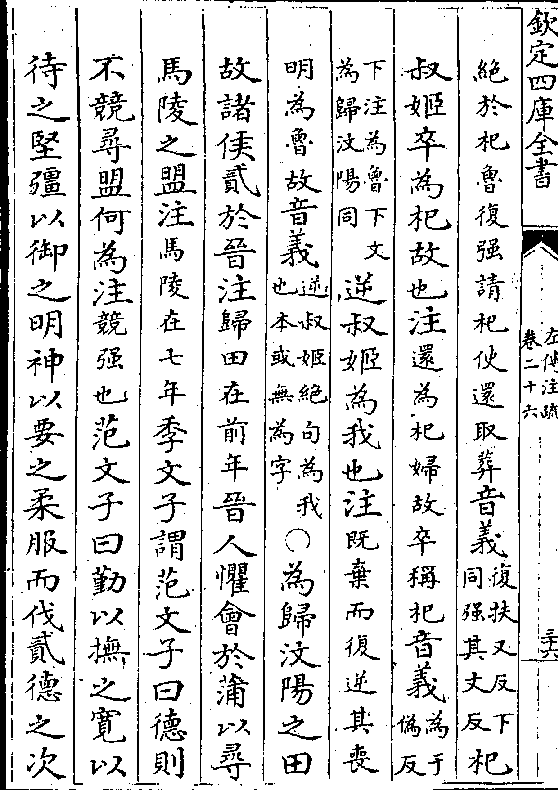 欽定四庫全書
左傳注疏
卷二十六
三十六
絶於杞魯復强請杞使還取葬音義復扶又反下同强其丈反杞
叔姬卒為杞故也注還為杞婦故卒稱杞音義為于偽反
下注為魯下文為歸汶陽同逆叔姬為我也注既棄而復逆其喪
明為魯故音義逆叔姬絶句為我也本或無為字○為歸汶陽之田
故諸侯貳於晉注歸田在前年晉人懼會於蒲以尋
馬陵之盟注馬陵在七年季文子謂范文子曰德則
不競尋盟何為注競强也范文子曰勤以撫之寛以
待之堅彊以御之明神以要之柔服而伐貳德之次